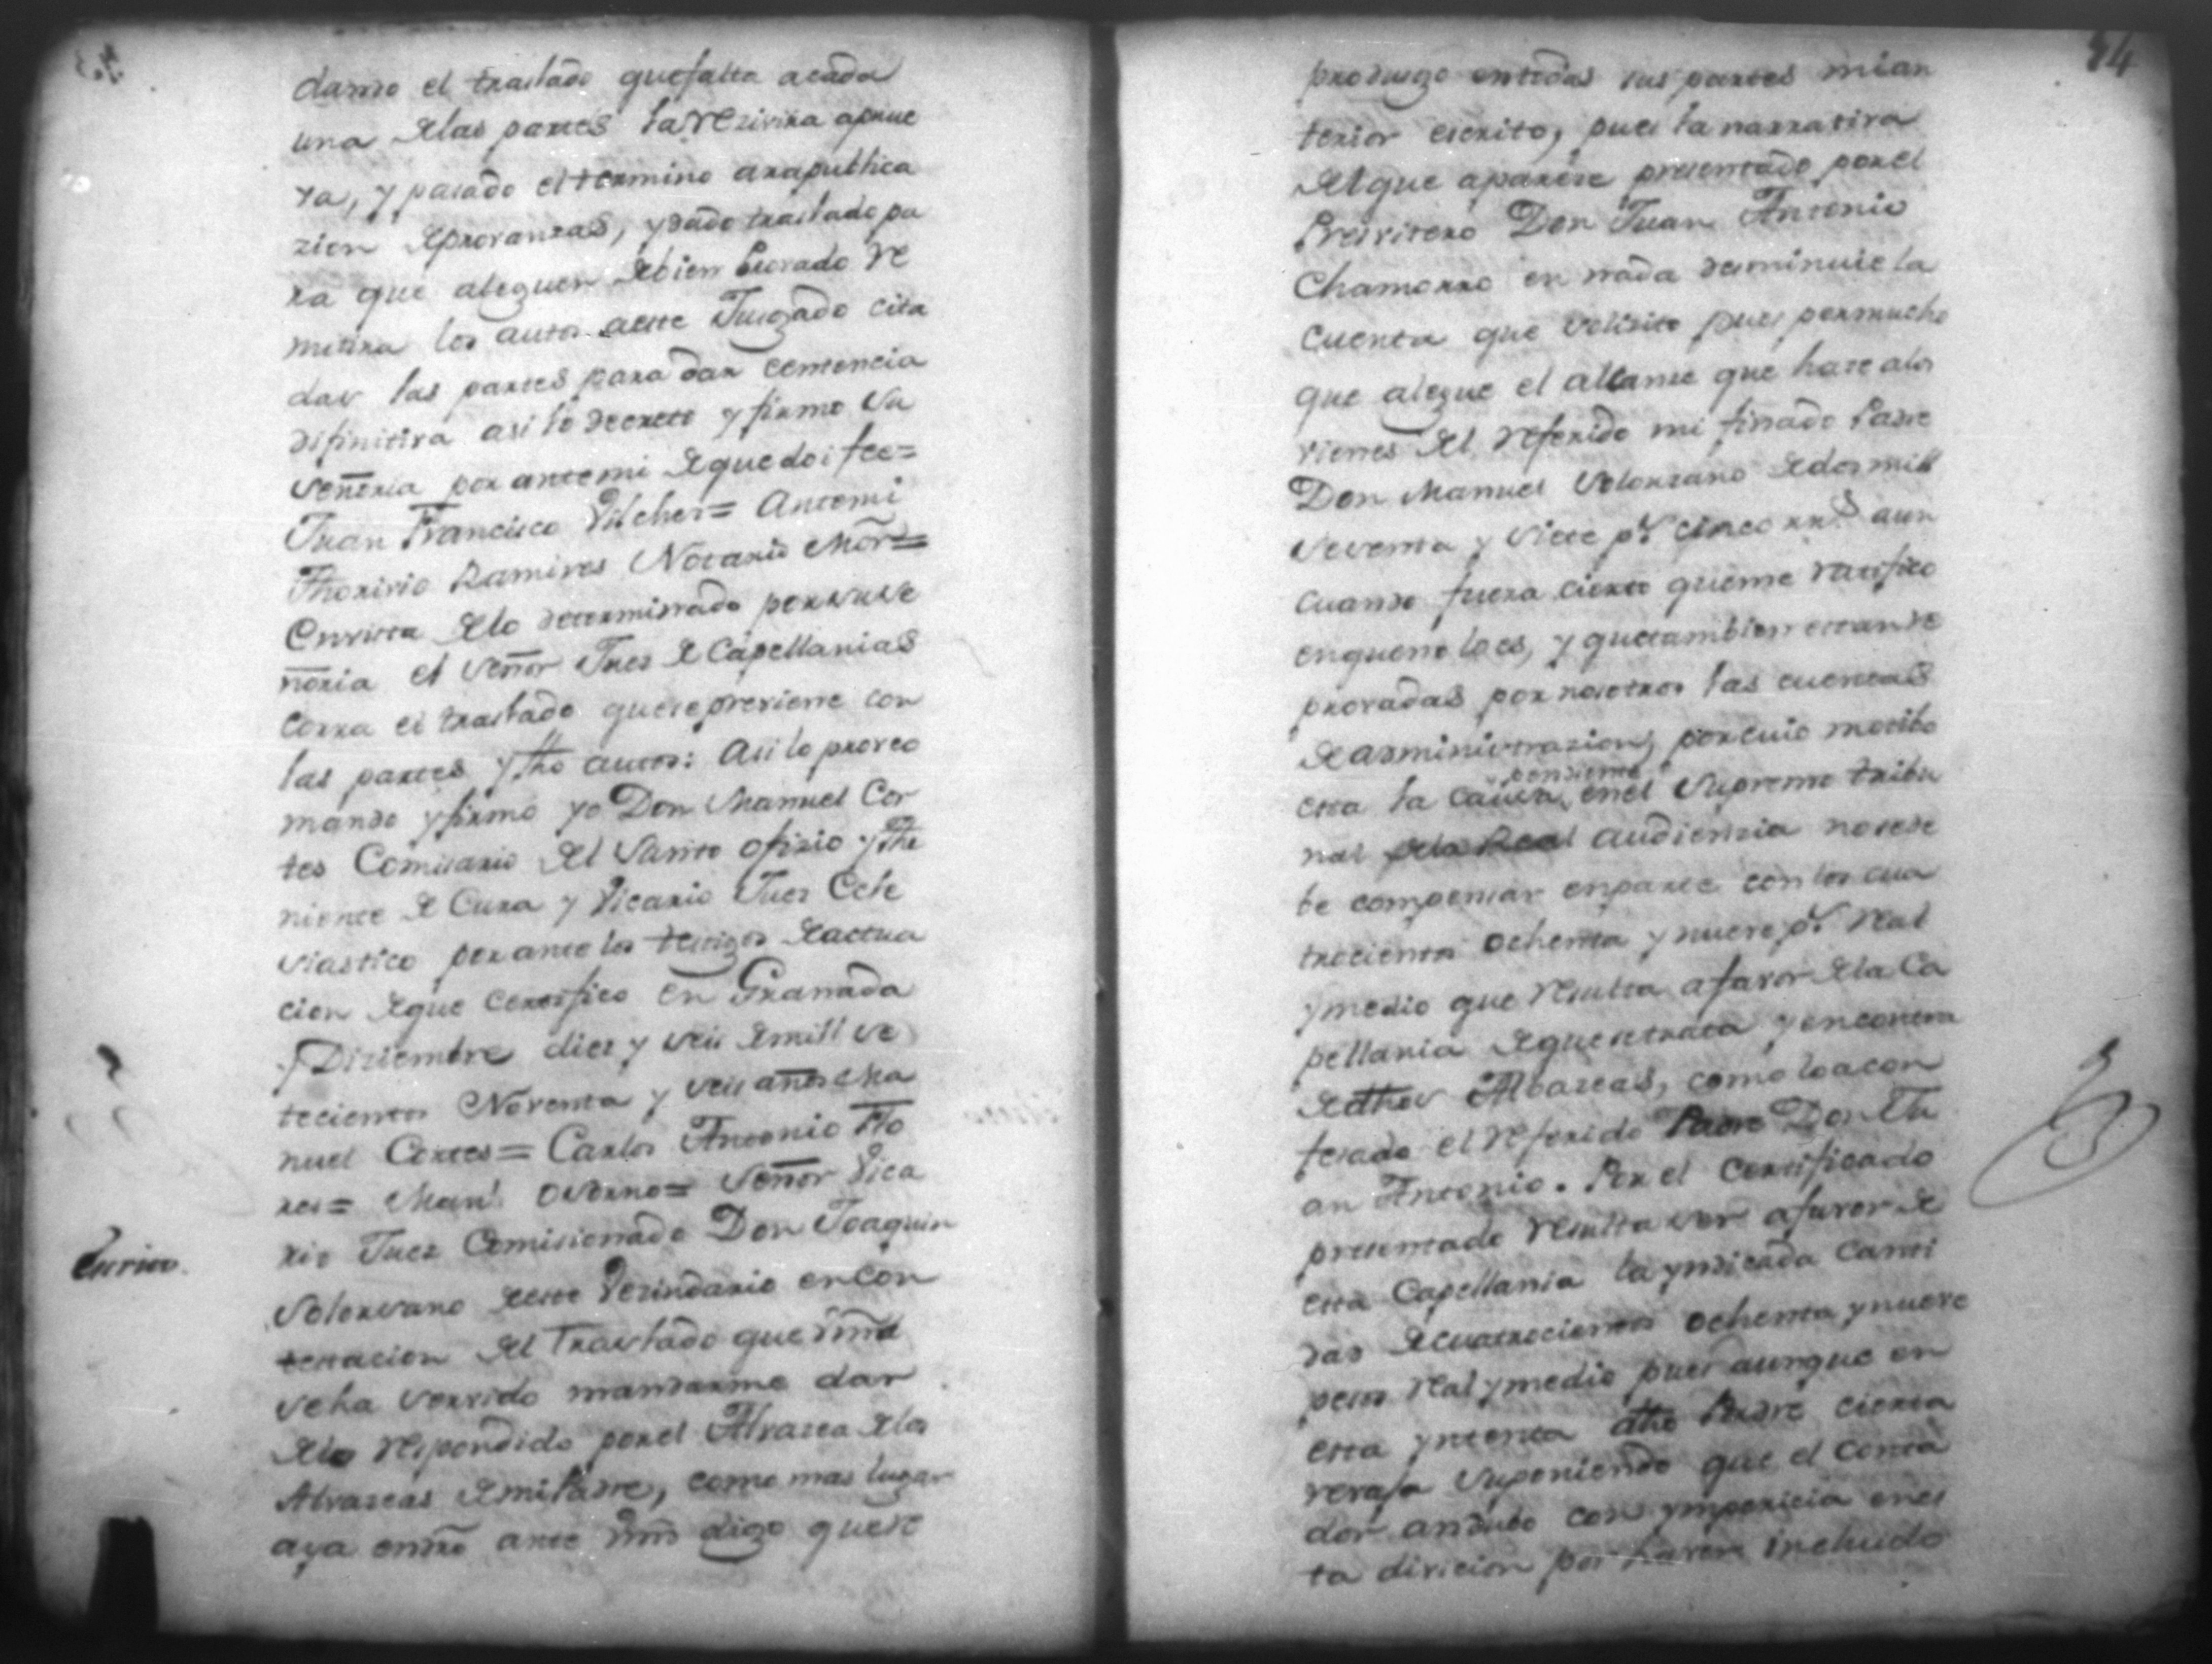 dando el traslado que falta a cada
una de las partes la rezivira a prue
va, y pasado el termino ara publica
zion de provanzas, y dado traslado pa
ra que aleguen de bien provado re
mitira los autos a este Juzgado cita
das las partes para dar centencia
difinitiva asi lo decreto y firmo su
señoria por ante mi de que doi fee=
Juan Francisco Vilches= Antemi
Thorivio Ramires Notario Mõr=
En vista de lo determinado por su se
ñoria el señor Juez de Capellanias
corra el traslado que se previene con
las partes y dhõ autos: Asi lo proveo
mando y firmo yo Don Manuel Cor
tes Comisario del Santo ofizio y The
niente de Cura y Vicario Juez Ecle
siastico por ante los testigos de actua
cion de que certifico en Granada
y Diziembre diez y seis de mill se
tecientos Noventa y seis años= Ma
nuel Cortes= Carlos Antonio Flo
res= Manl. Osorno= Señor Vica
rio Juez Comisionado Don Joaquin
Escrito.
Solorsano de este Vezindario en con
testacion del Traslado que Vmd
se ha servido mandarme dar
de lo respondido por el Alvazea de los
Alvazeas de mi Padre, como mas lugar
aya en dro ante Vmd digo que re
74
produzgo en todas sus partes mi an
terior escrito, pues la narrativa
del que aparese presentado por el
Presvitero Don Juan Antonio
Chamorro en nada desminuie la
cuenta que solisito pues por mucho
que alegue el alcanse que hase a los
vienes del referido mi finado Padre
Don Manuel Solorzano de dos mill
sesenta y siete ps. cinco rrs. aun
cuando fuera cierto que me ratifico
en que no lo es, y que tambien estan re
provadas por nosotros las cuentas
de administrazion, por cuio motibo
esta la causa pendiente en el Supremo tribu
nal de la Real audiensia no se de
be compensar en parte con los cua
trocientos ochenta y nueve ps. real
y medio que resulta a favor de la Ca
pellania de que se trata y en contra
de dhos Albazeas, como lo a con
fesado el referido Padre Don Ju
an Antonio. Por el certificado
presentado resulta ser a favor de
esta Capellania la yndicada canti
dad de cuatrocientos ochenta y nueve
pesos real y medio pues aunque en
esta yntenta dho Padre cierta
revaja suponiendo que el Conta
dor andubo con ympericia en es
ta divicion por haver incluido